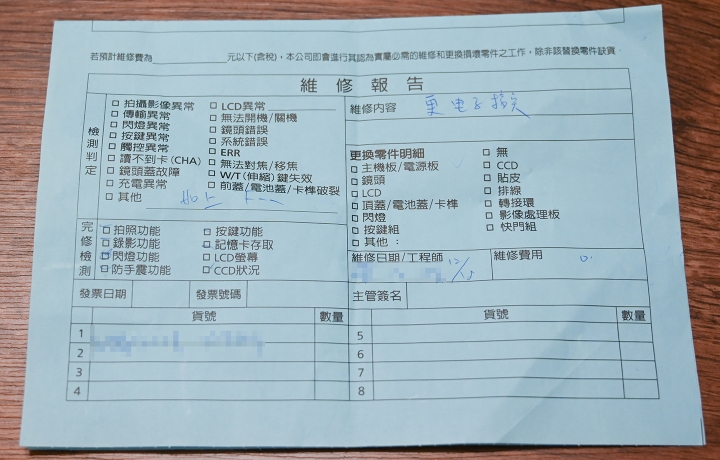 若預計維修費為____________元以下(含稅)，本公司即會進行其認為實屬必需的維修和更換損壞零件之工作，除非該替換零件缺貨．
維修報告
檢測判定
□ 拍攝影像異常 □ LCD異常
□ 傳輸異常 □ 無法開機/關機
□ 閃燈異常 □ 鏡頭錯誤
□ 按鍵異常 □ 系統錯誤
□ 觸控異常 □ ERR
□ 讀不到卡(CHA) □ 無法對焦/移焦
□ 鏡頭蓋故障 □ W/T(伸縮)鍵失效
□ 充電異常 □ 前蓋/電池蓋/卡榫破裂
□ 其他
維修內容
更換零件明細 □ 無
□ 主機板/電源板 □ CCD
□ 鏡頭 □ 貼皮
□ LCD □ 排線
□ 頂蓋/電池蓋/卡榫 □ 轉接環
□ 閃燈 □ 影像處理板
□ 按鍵組 □ 快門組
□ 其他：
完修檢測
□ 拍照功能 □ 按鍵功能
□ 錄影功能 □ 記憶卡存取
□ 閃燈功能 □ LCD螢幕
□ 防手震功能 □ CCD狀況
維修日期/工程師 12/ 維修費用 0.
發票日期 發票號碼 主管簽名
貨號 數量 貨號 數量
1 5
2 6
3 7
4 8